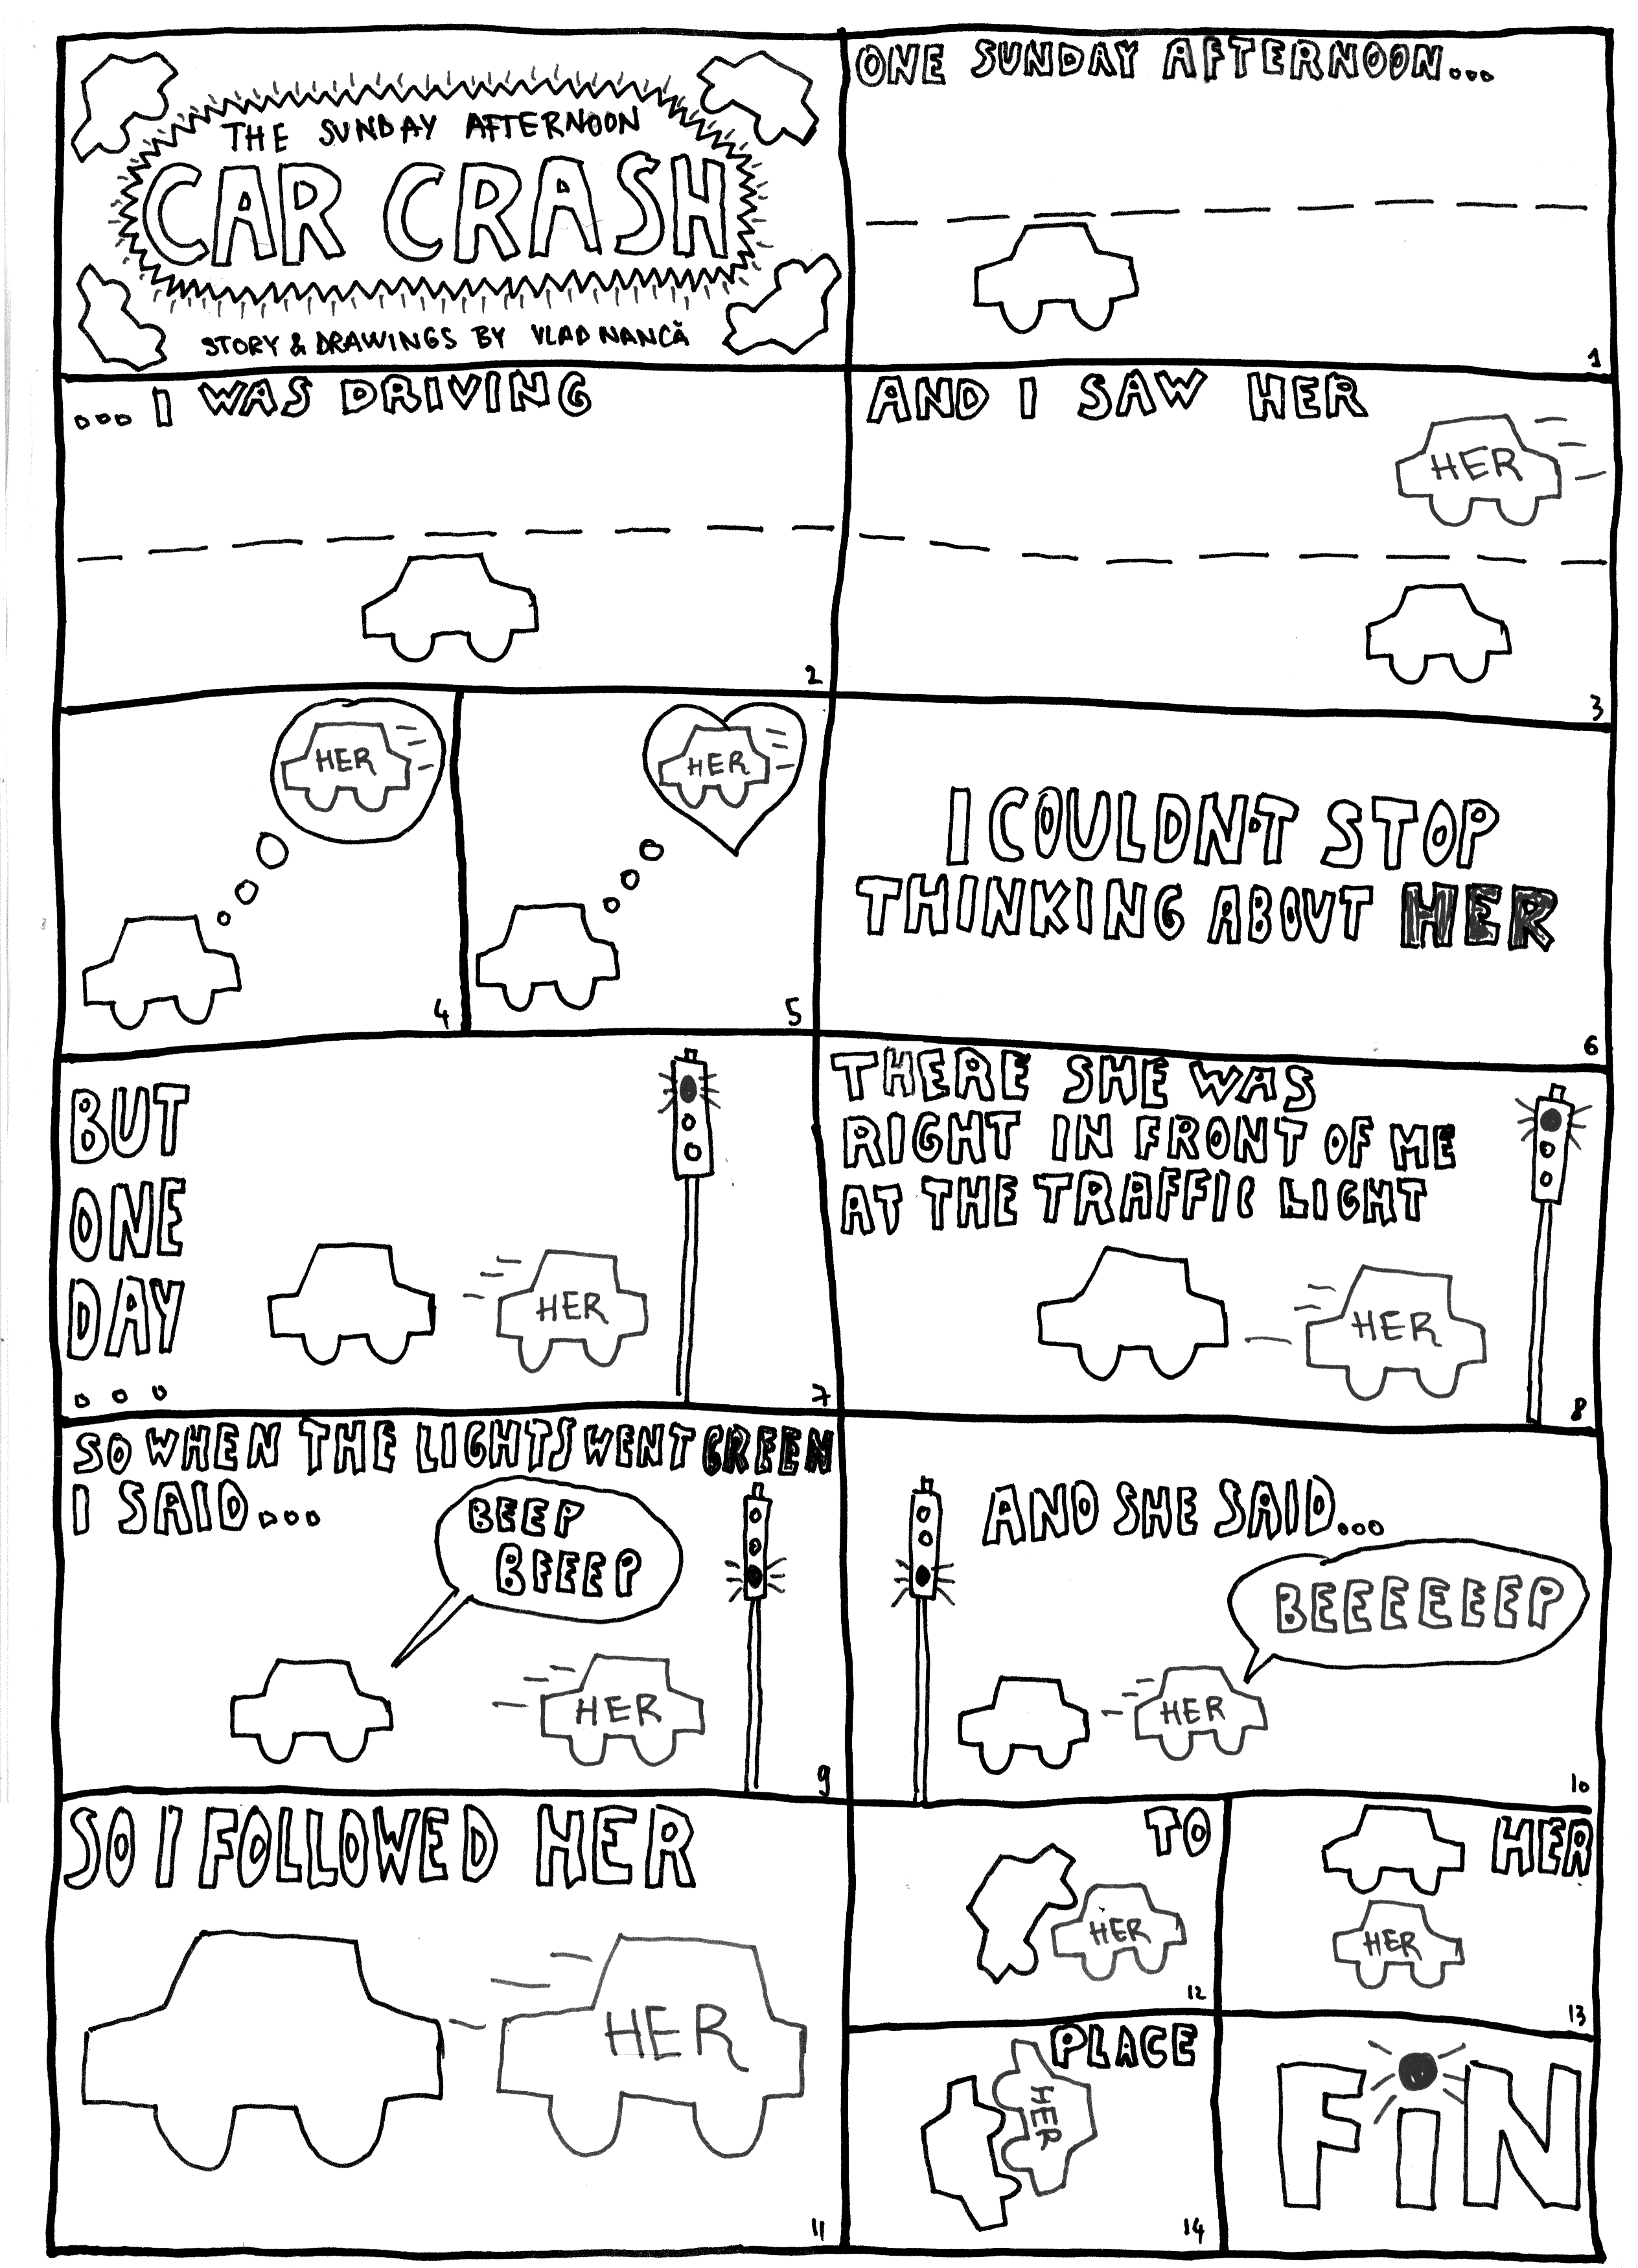 THE SUNDAY AFTERNOON
CAR CRASH
STORY & DRAWINGS BY VLAD NANCĂ
ONE SUNDAY AFTERNOON...
1
...I WAS DRIVING
2
AND I SAW HER
HER
3
HER
4
HER
5
I COULDN'T STOP
THINKING ABOUT HER
6
BUT
ONE
DAY
...
HER
7
THERE SHE WAS
RIGHT IN FRONT OF ME
AT THE TRAFFIC LIGHT
HER
8
SO WHEN THE LIGHTS WENT GREEN
I SAID...
BEEP
BEEEP
HER
9
AND SHE SAID...
BEEEEEEP
HER
10
SO I FOLLOWED HER
HER
11
TO
HER
12
HER
HER
13
PLACE
HER
14
FiN